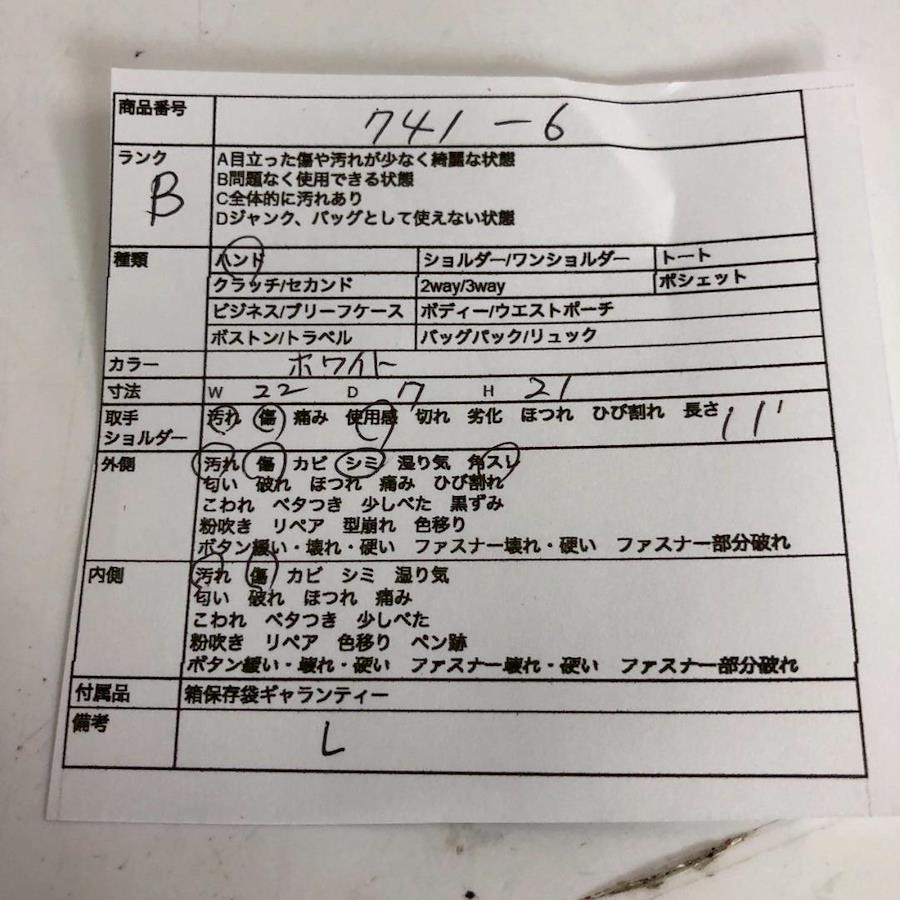 商品番号 741-6
ランク B
A目立った傷や汚れが少なく綺麗な状態
B問題なく使用できる状態
C全体的に汚れあり
Dジャンク、バッグとして使えない状態
種類 ハンド ショルダー/ワンショルダー トート
クラッチ/セカンド 2way/3way ポシェット
ビジネス/ブリーフケース ボディー/ウエストポーチ
ボストン/トラベル バッグパック/リュック
カラー ホワイト
寸法 W 22 D 7 H 21
取手 汚れ 傷 痛み 使用感 切れ 劣化 ほつれ ひび割れ 長さ 11
ショルダー
外側 汚れ 傷 カビ シミ 湿り気 角スレ
匂い 破れ ほつれ 痛み ひび割れ
こわれ ベタつき 少しべた 黒ずみ
粉吹き リペア 型崩れ 色移り
ボタン緩い・壊れ・硬い ファスナー壊れ・硬い ファスナー部分破れ
内側 汚れ 傷 カビ シミ 湿り気
匂い 破れ ほつれ 痛み
こわれ ベタつき 少しべた
粉吹き リペア 色移り ペン跡
ボタン緩い・壊れ・硬い ファスナー壊れ・硬い ファスナー部分破れ
付属品 箱保存袋ギャランティー
備考 L